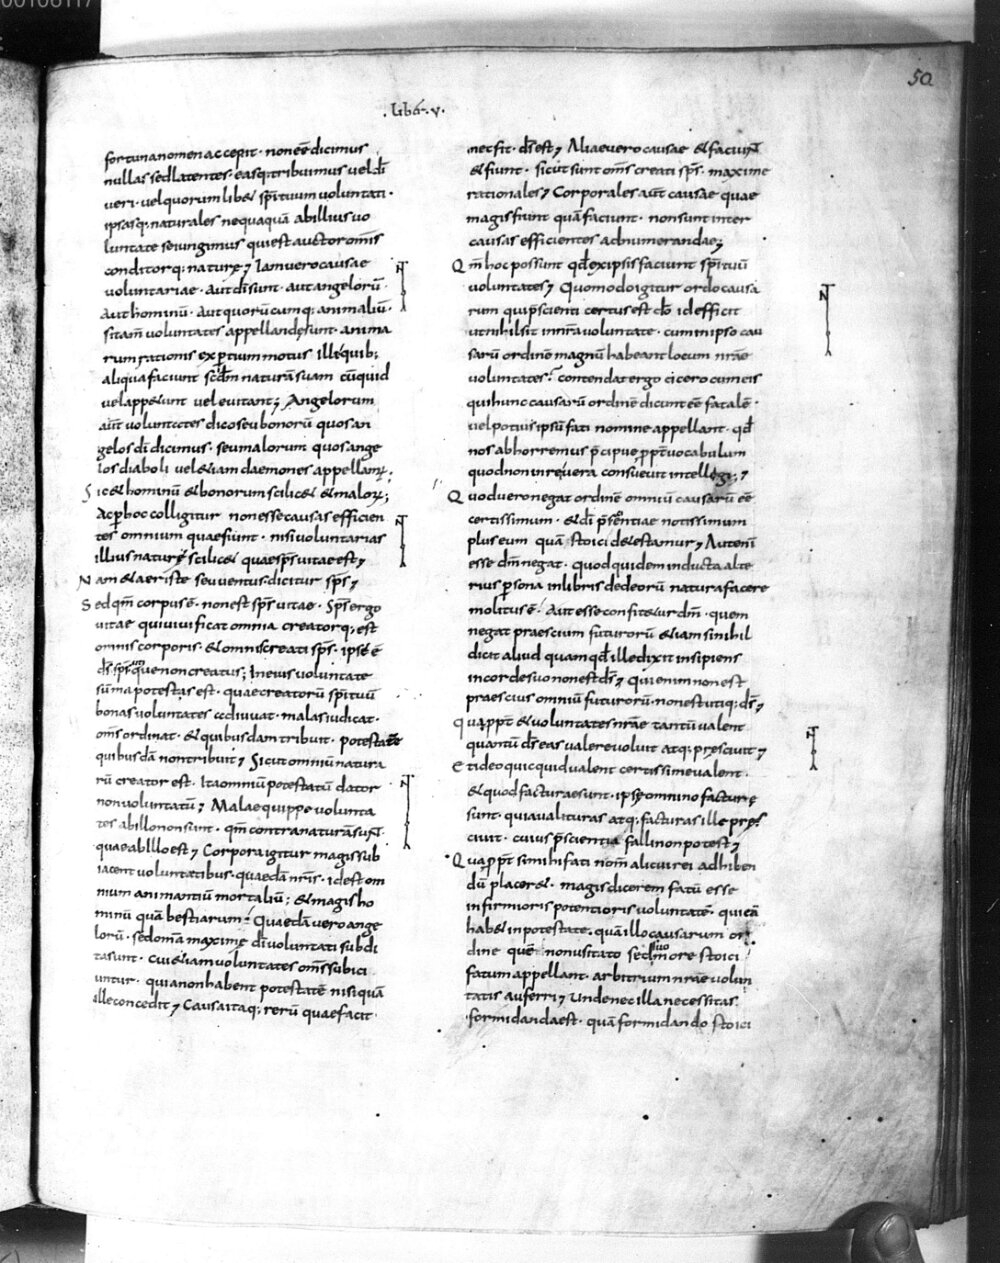 50
.Lib&r.v.
fortuna nomen accepit. non eē dicimus
nullas sed latentes. easq; tribuimus vel dī
veri. vel quorumlib& spirituum voluntati.
ipsasq; naturales nequaquā ab illius vo
luntate seiungimus qui est auctor omīs
conditorq; naturę; Iam vero causae
voluntariae. aut dī sunt. aut angelorū.
aut hominū. aut quorūcumq; animaliū.
si tam̄ voluntates appellandę sunt. anima
rum rationis expertium motus illi quib;
aliqua faciunt scdm naturā suam cū quid
vel app&unt vel evitant; Angelorum
aut voluntates dico seu bonorū quos an
gelos dī dicimus. seu malorum quos ange
los diaboli vel &iam daemones appellam;
Sic & hominū & bonorum scilic& & malorum;
Ac p hoc colligitur non esse causas efficien
tes omnium quae fiunt. nisi voluntarias
illius naturę scilic& quae sps vitae est;
Nam & aer iste seu ventus dicitur sps;
Sed qm corpus ē. non est sps vitae. Sps ergo
vitae qui vivificat omnia creatorq; est
omnis corporis. & omnis creati sps. ipse ē
ds sps utiq; non creatus; In eius voluntate
summa potestas est. quae creatorū spirituū
bonas voluntates adiuvat. malas iudicat.
oms ordinat. & quibusdam tribuit. potestatē
quibusdā non tribuit; Sicut omniū natura
rū creator est. Ita omniū potestatū dator
non voluntatū; Malae quippe volunta
tes ab illo non sunt. qm contra naturā sunt
quae ab illo est; Corpora igitur magis sub
iacent voluntatibus. quaedā nris. id est om
nium animantiū mortaliū; & magis ho
minū quā bestiarum. Quaedā vero ange
lorū. sed omā maximę dī voluntati subdi
ta sunt. cui &iam voluntates oms subici
untur. quia non habent potestatē nisi quā
ille concedit; Causa itaq; rerū quae facit.
nec fit. ds est; Aliae vero causae & faciunt
& fiunt. sicut sunt oms creati sps. maxime
rationales; Corporales aut causae quae
magis fiunt quā faciunt. non sunt inter
causas efficientes adnumerandae;
Qm hoc possunt qd ex ipsis faciunt spirituū
voluntates; Quomodo igitur ordo causa
rum qui pscienti certus est do id efficit
ut nihil sit in nra voluntate. cum in ipso cau
sarū ordine magnū habeant locum nrae
voluntates? contendat ergo cicero cum eis
qui hunc causarū ordine dicunt eē fatale.
vel potius ipsū fati nomine appellant. qd
nos abhorremus p̄cipue ppt vocabulum
quod non in re vera consuevit intellegi;
Quod vero negat ordinē omniū causarū eē
certissimum. & dī psentiae notissimum
plus eum quā stoici detestamur; Aut enī
esse dm negat. quod quidem inducta alte
rius psona in libris de deorū natura facere
molitus ē. Aut esse confit&ur dm. quem
negat praescium futurorū &iam si nihil
dicit aliud quam qd ille dixit insipiens
in corde suo non est ds; qui enim non est
praescius omniū futurorū. non est utiq; ds;
Quappt & voluntates nrae tantū valent
quantū ds eas valere voluit atq; pręscivit;
Et ideo quicquid valent certissime valent.
& quod facturae sunt. ipsę omnino facturę
sunt. quia valituras atq; facturas ille prę
scivit. cuius pscientia falli non potest;
Quappt si mihi fati nom̄ alicui rei adhiben
dū placer&. magis dicerem fatū esse
infirmioris potentioris voluntatē. qui eā
hab& in potestate. quā illo causarum or
dine quē non usitato sed suo more stoici
fatum appellant. arbitrium nrae volun
tatis auferri; Unde nec illa necessitas
formidanda est. quā formidando stoici